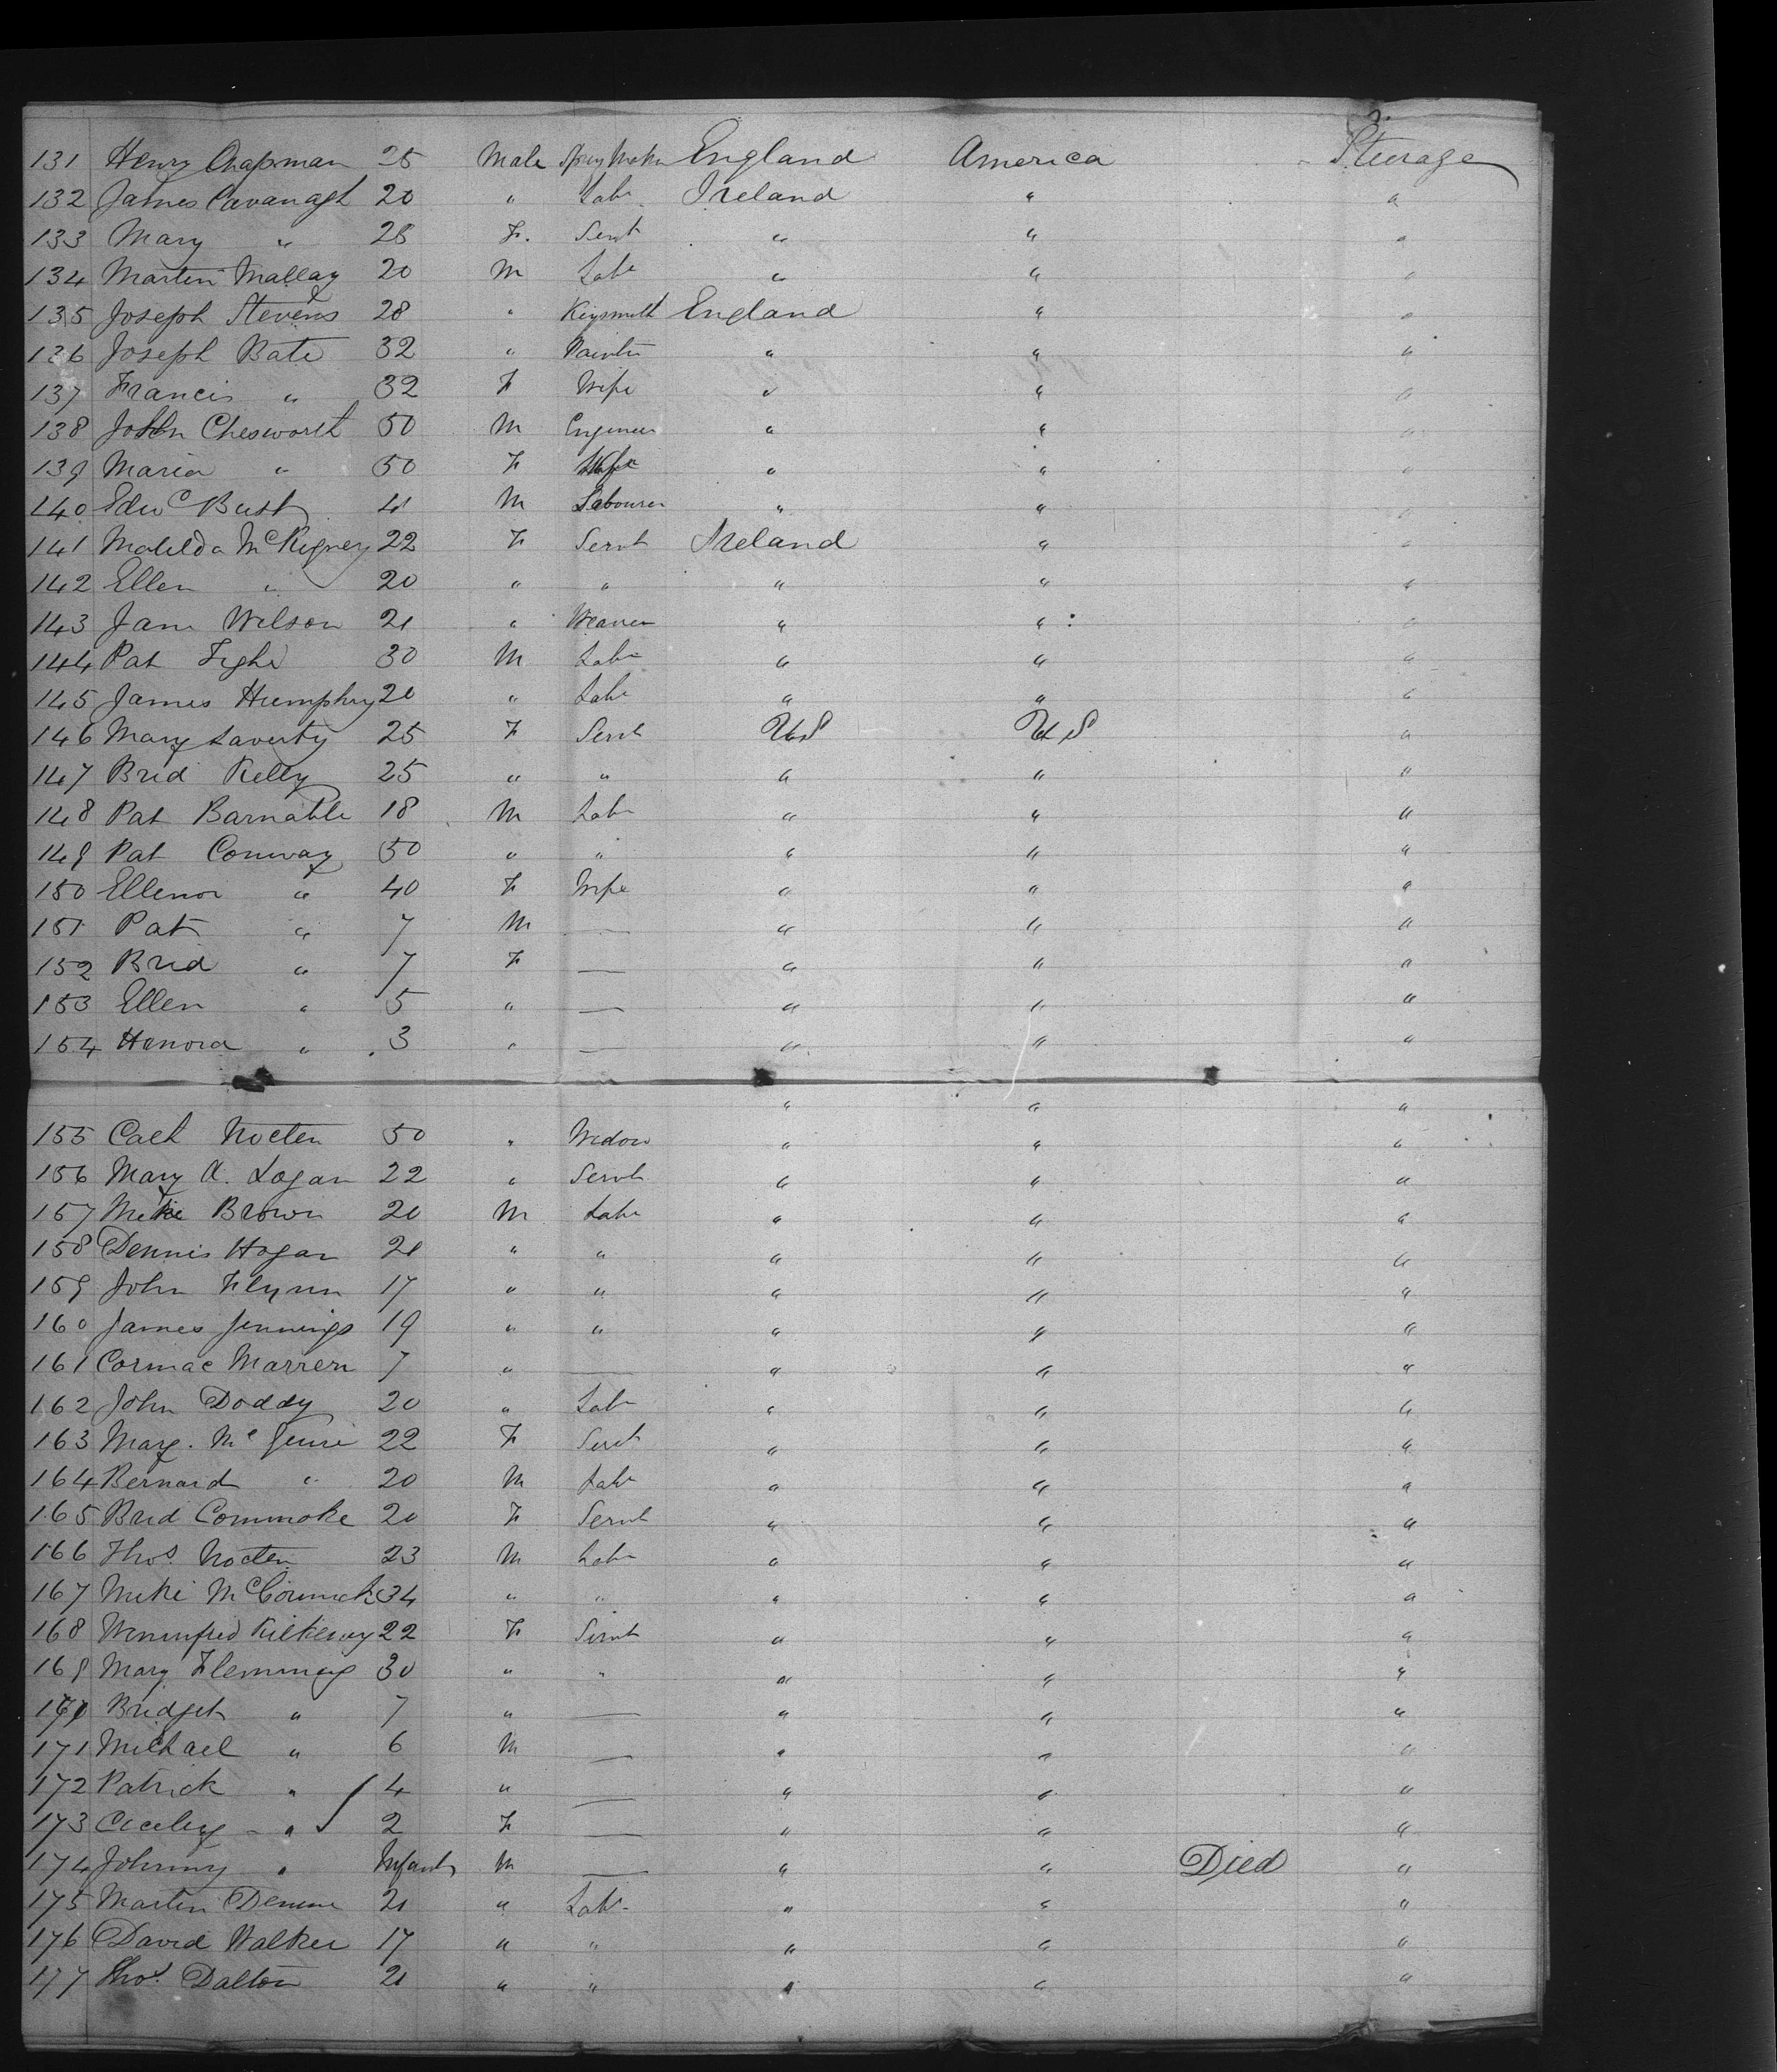 131 Henry Chapman 25 Male Spring Maker England America Steerage
132 James Cavanagh 20 " Labr Ireland " "
133 Mary " 28 F. Servt " " "
134 Martin Mallay 20 M Labr " " "
135 Joseph Stevens 28 " Keysmith England " "
136 Joseph Bate 32 " Painter " " "
137 Francis " 32 F Wife " " "
138 John Chesworth 50 M Engineer " " "
139 Maria " 50 F Wife " " "
140 Edwd Bust 41 M Labourer " " "
141 Matilda McRigney 22 F Servt Ireland " "
142 Ellen " 20 " " " " "
143 Jane Wilson 21 " Weaver " " "
144 Pat Tighe 30 M Labr " " "
145 James Humphry 20 " Labr " " "
146 Mary Laverty 25 F Servt US US "
147 Brid Kelly 25 " " " " "
148 Pat Barnable 18 M Labr " " "
149 Pat Conway 50 " " " " "
150 Ellenor " 40 F Wife " " "
151 Pat " 7 M — " " "
152 Brid " 7 F — " " "
153 Ellen " 5 " — " " "
154 Hanora " 3 " — " " "
" " "
155 Cath Nocten 50 " Widow " " "
156 Mary A. Logan 22 " Servt " " "
157 Mike Brown 20 M Labr " " "
158 Dennis Hogan 21 " " " " "
159 John Flynn 17 " " " " "
160 James Jennings 19 " " " " "
161 Cormac Marren 7 " — " " "
162 John Doddy 20 " Labr " " "
163 Marg. Mc Guire 22 F Servt " " "
164 Bernard " 20 M Labr " " "
165 Brid Commoke 20 F Servt " " "
166 Thos Nocten 23 M Labr " " "
167 Mike McCormick 34 " " " " "
168 Winnifred Kilkenny 22 F Servt " " "
169 Mary Flemming 30 " " " " "
170 Bridget " 7 " — " " "
171 Michael " 6 M — " " "
172 Patrick " 4 " — " " "
173 Ceceley " 2 F — " " "
174 Johnny " Infant M — " " Died "
175 Martin 21 " Labr " " "
176 David Walker 17 " " " " "
177 Thos Dalton 21 " " " " "